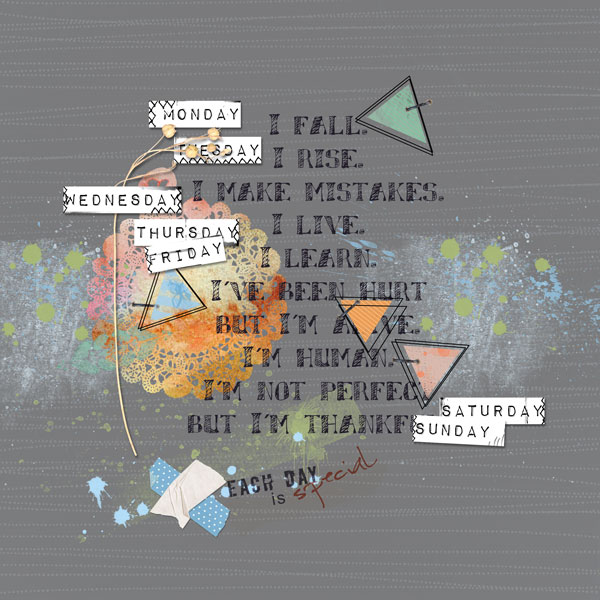 MONDAY
TUESDAY
WEDNESDAY
THURSDAY
FRIDAY
I FALL.
I RISE.
I MAKE MISTAKES.
I LIVE.
I LEARN.
I'VE BEEN HURT
BUT I'M ALIVE.
I'M HUMAN.
I'M NOT PERFEC
BUT I'M THANKF
SATURDAY
SUNDAY
EACH DAY
is special